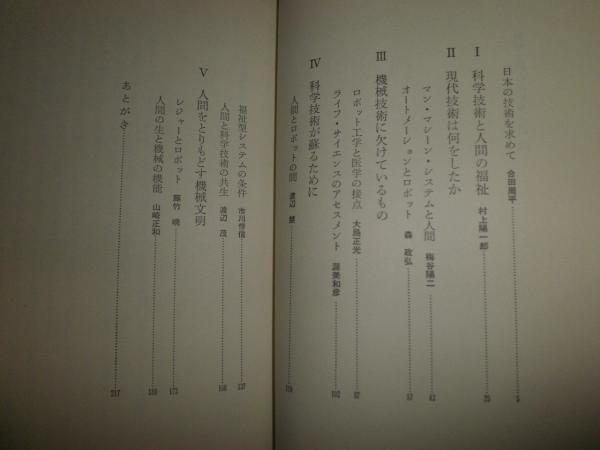 日本の技術を求めて 合田周平 5
Ⅰ 科学技術と人間の福祉 村上陽一郎 25
Ⅱ 現代技術は何をしたか
マン・マシーン・システムと人間 梅谷陽二 42
オートメーションとロボット 森 政弘 57
Ⅲ 機械技術に欠けているもの
ロボット工学と医学の接点 大島正光 82
ライフ・サイエンスのアセスメント 渥美和彦 102
Ⅳ 科学技術が蘇るために
人間とロボットの間 渡辺 慧
福祉型システムの条件 市川惇信 137
人間と科学技術の共生 渡辺 茂 158
Ⅴ 人間をとりもどす機械文明
レジャーとロボット 藤竹 暁 175
人間の生と機械の機能 山崎正和
あとがき 217